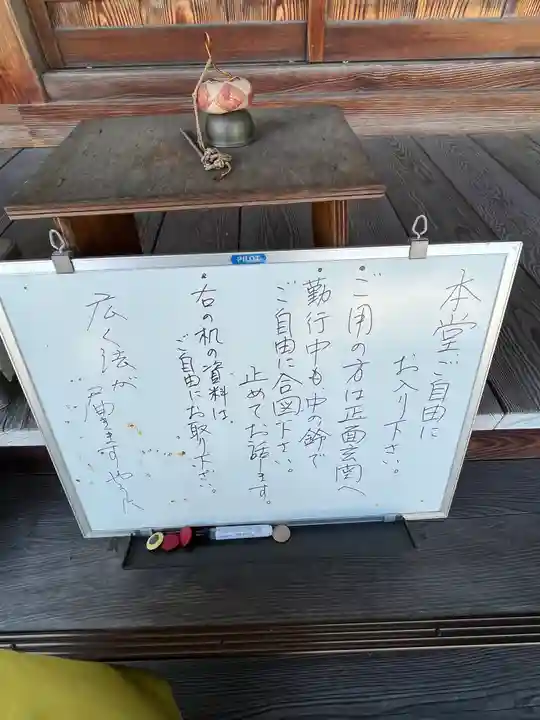 本堂ご自由に
お入り下さい。
・ご用の方は正面玄関へ
・勤行中も中の鈴で
ご自由に合図下さい。
止めてお話します。
・右の机の資料は、
ご自由にお取り下さい。
広く法が
届きますように
PILOT